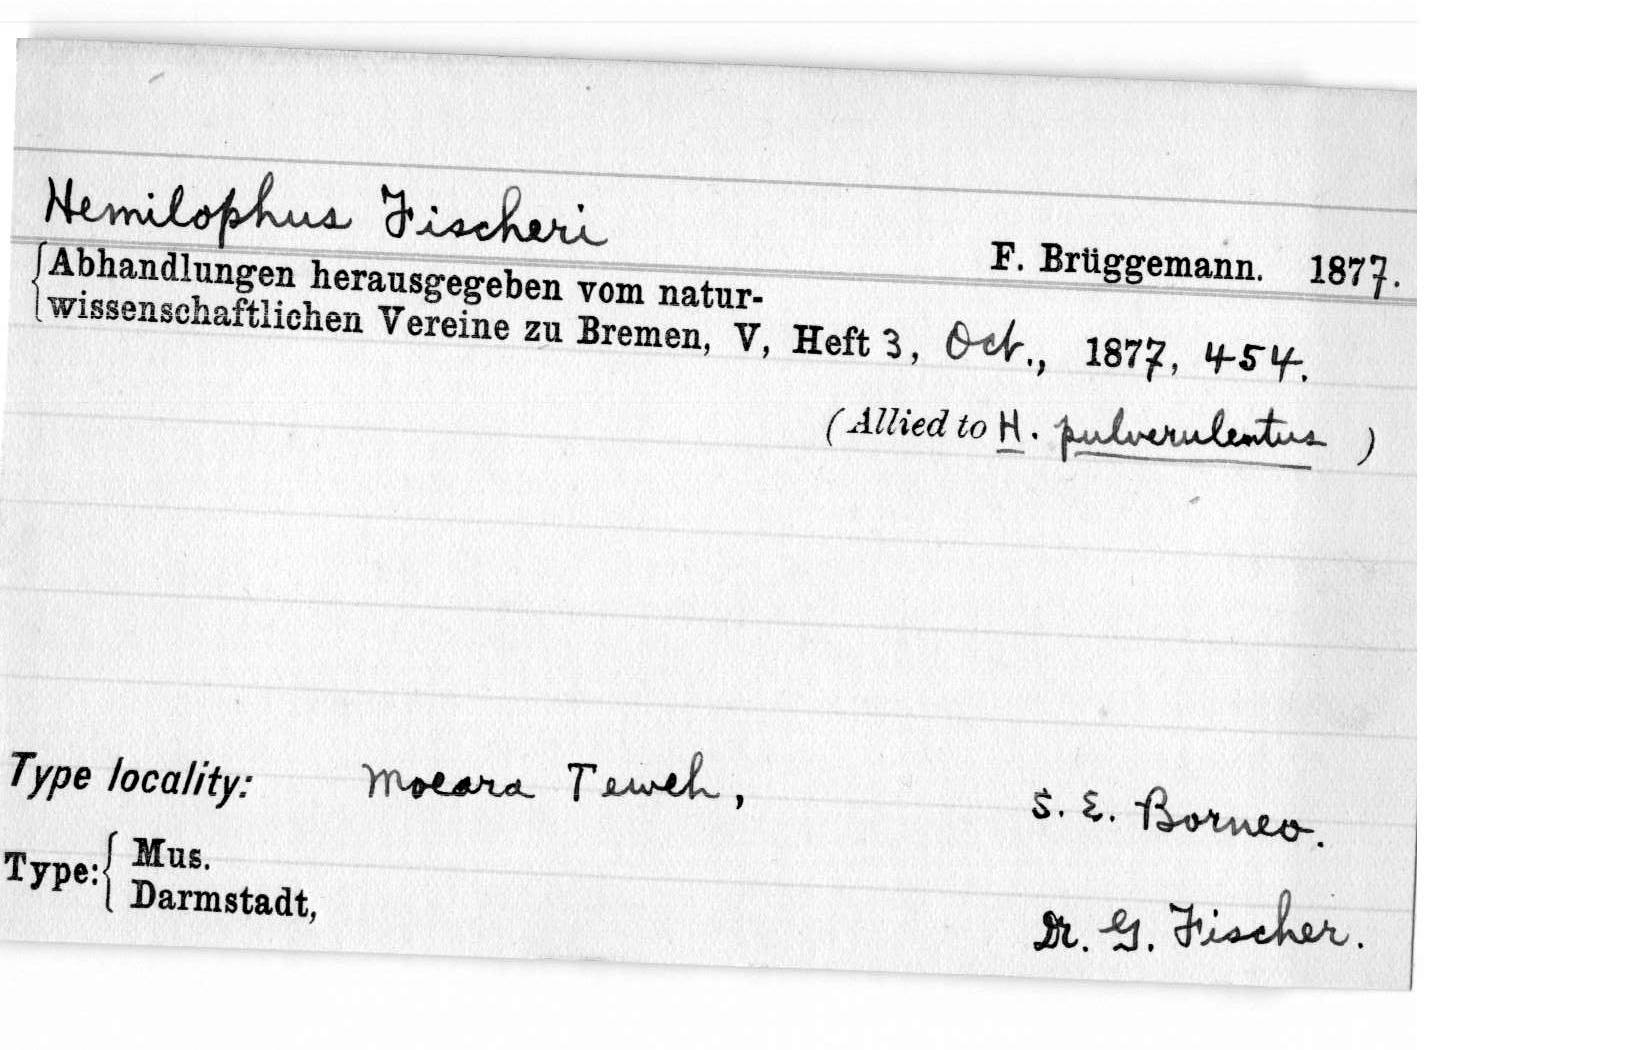 Hemilophus Fischeri
F. Brüggemann. 1877.
Abhandlungen herausgegeben vom natur-
wissenschaftlichen Vereine zu Bremen, V, Heft 3, Oct., 1877, 454.
(Allied to H. pulverulentus )
Type locality: Moeara Teweh, S. E. Borneo.
Type: Mus.
Darmstadt,
Dr. G. Fischer.